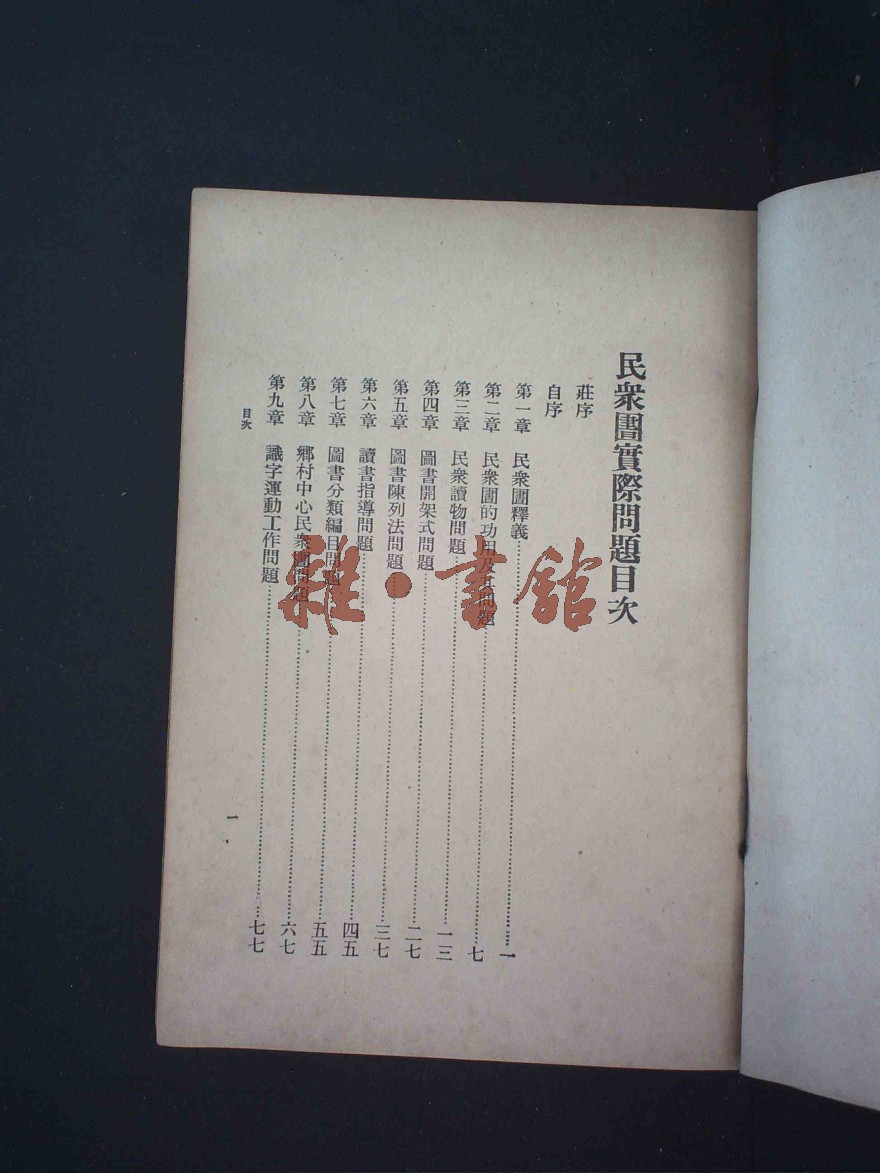 民衆圕實際問題目次
莊序
自序
第一章 民衆圕釋義……一
第二章 民衆圕的功用及其問題……七
第三章 民衆讀物問題……一三
第四章 圖書開架式問題……二七
第五章 圖書陳列法問題……三七
第六章 讀書指導問題……四五
第七章 圖書分類編目問題……五五
第八章 鄉村中心民衆圕問題……六七
第九章 識字運動工作問題……七七
目次 一
雜·書館